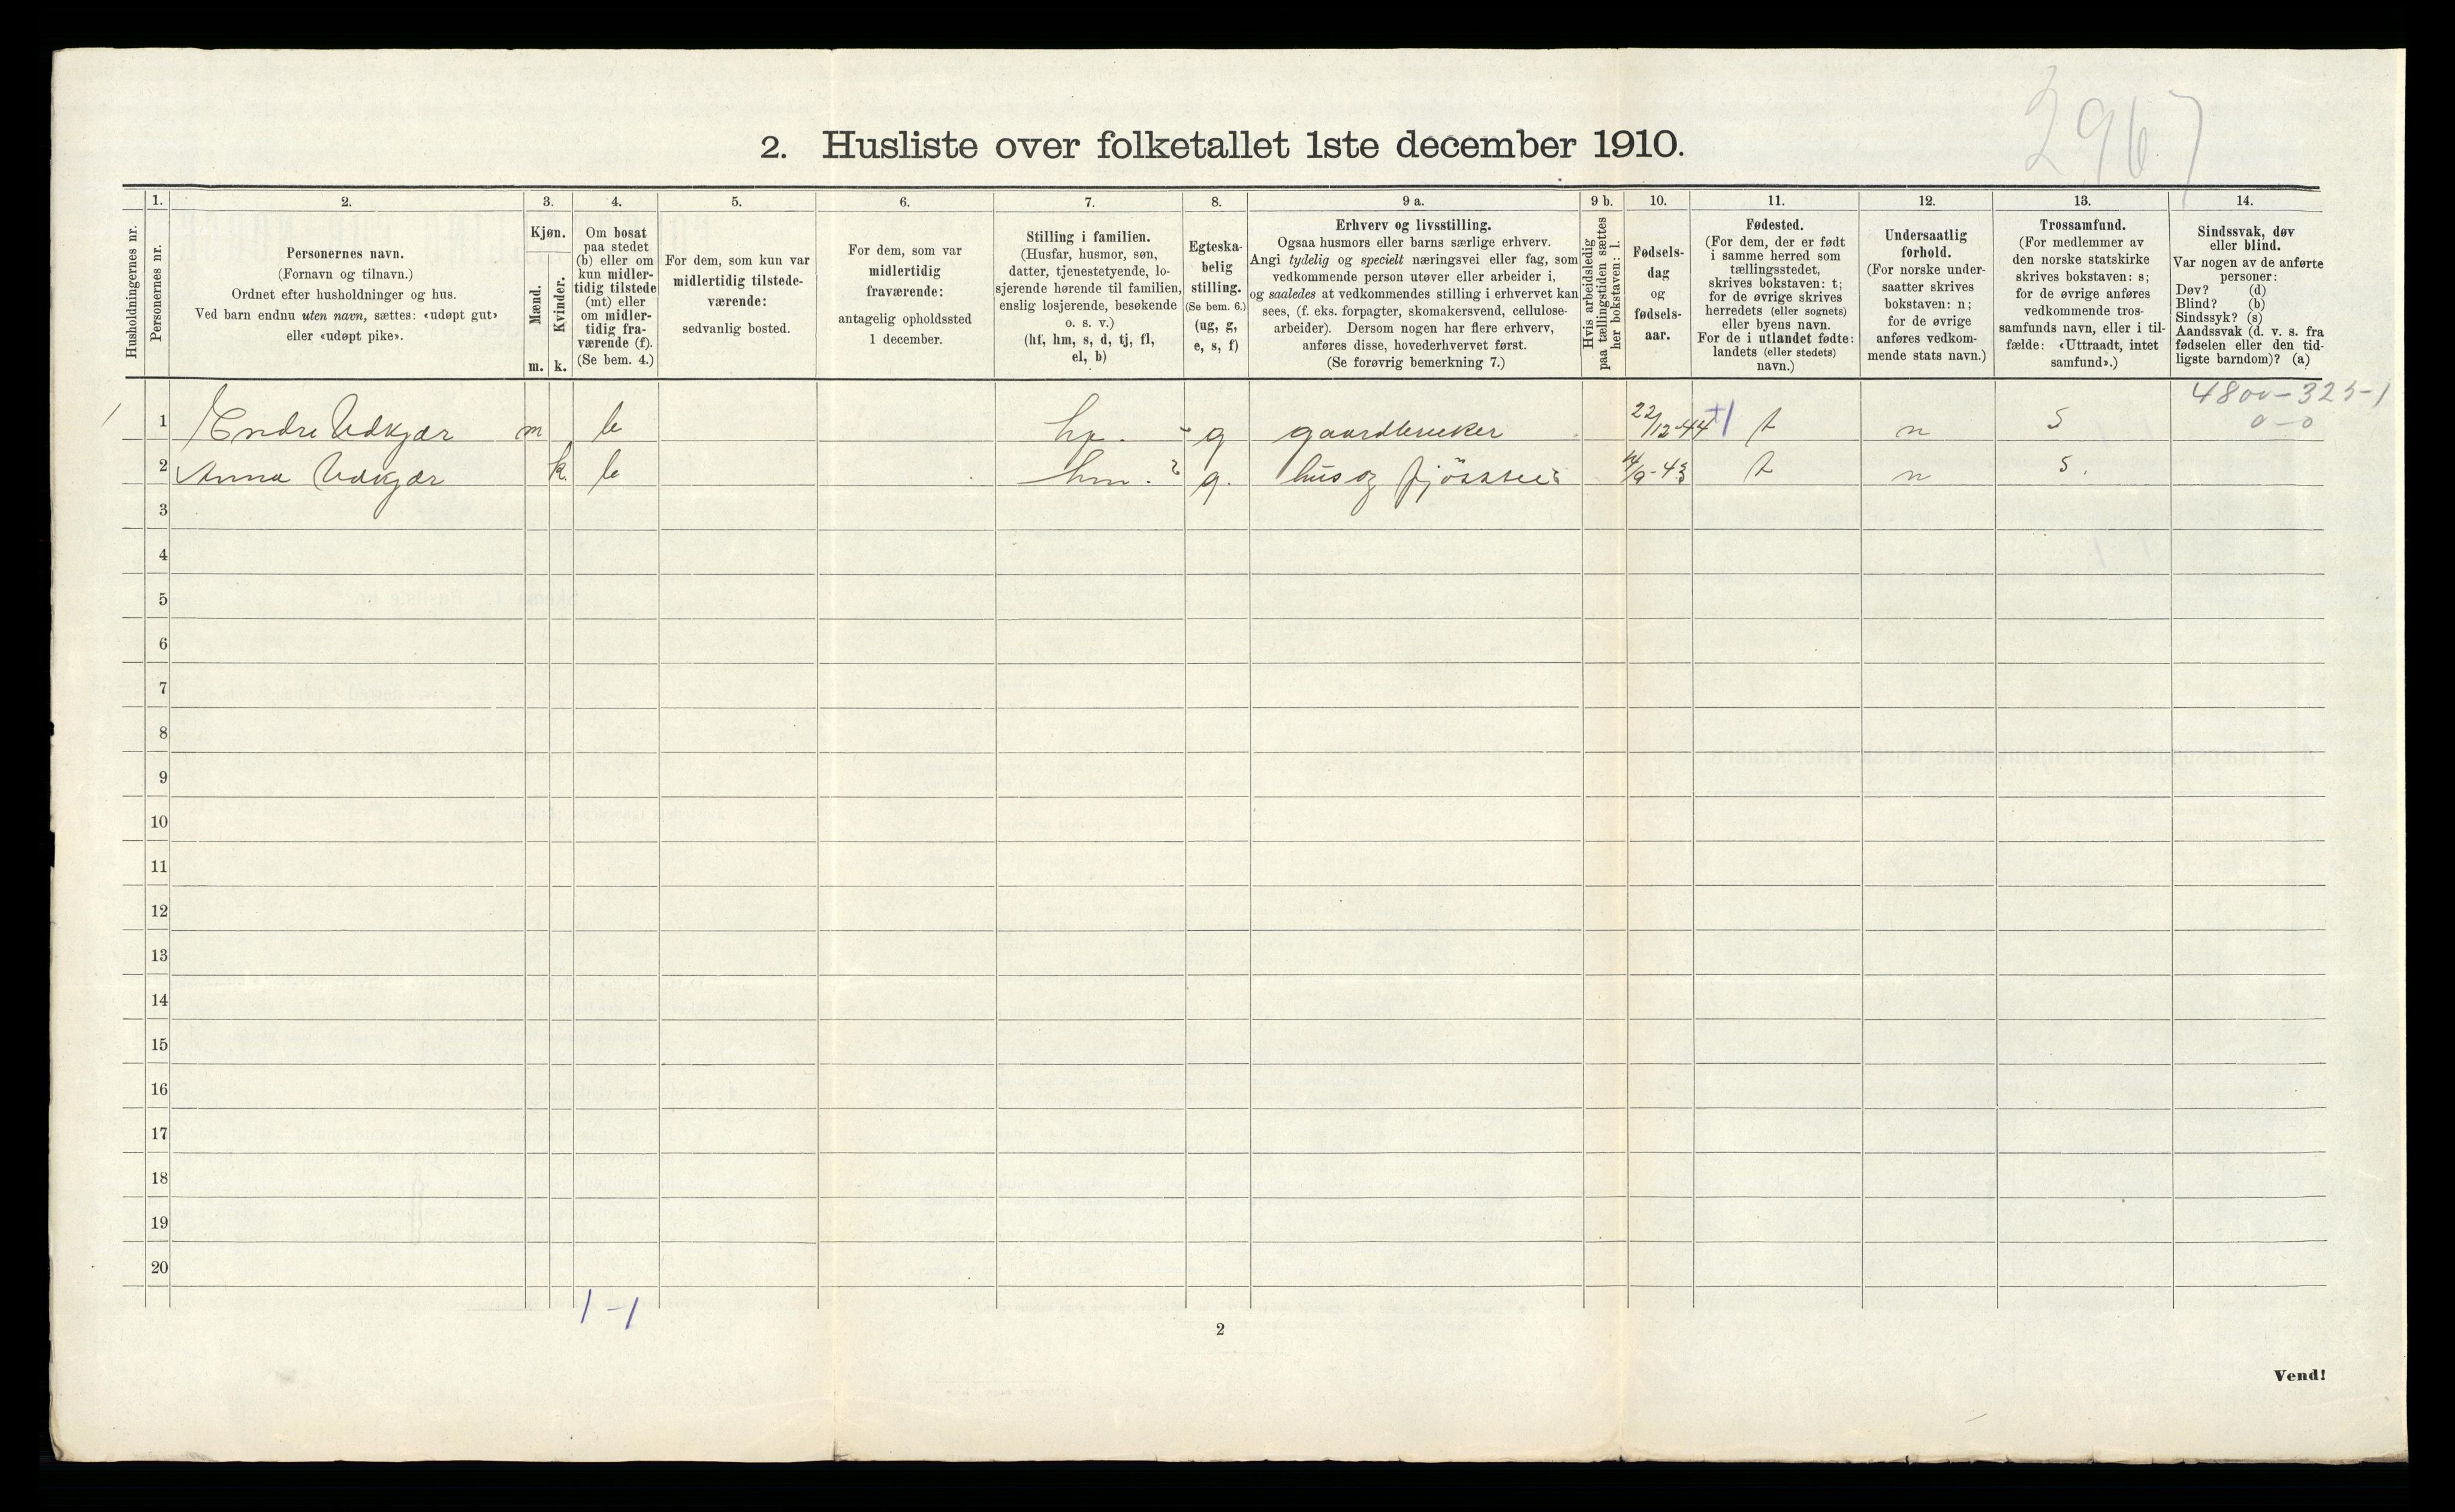 2967
2. Husliste over folketallet 1ste december 1910.
Husholdningernes nr.
1.
Personernes nr.
2.
Personernes navn.
(Fornavn og tilnavn.)
Ordnet efter husholdninger og hus.
Ved barn endnu uten navn, sættes: «udøpt gut»
eller «udøpt pike».
3.
Kjøn.
Mænd.
Kvinder.
m. k.
4.
Om bosat
paa stedet
(b) eller om
kun midler-
tidig tilstede
(mt) eller
om midler-
tidig fra-
værende (f).
(Se bem. 4.)
5.
For dem, som kun var
midlertidig tilstede-
værende:
sedvanlig bosted.
6.
For dem, som var
midlertidig
fraværende:
antagelig opholdssted
1 december.
7.
Stilling i familien.
(Husfar, husmor, søn,
datter, tjenestetyende, lo-
sjerende hørende til familien,
enslig losjerende, besøkende
o. s. v.)
(hf, hm, s, d, tj, fl,
el, b)
8.
Egteska-
belig
stilling.
(Se bem. 6.)
(ug, g,
e, s, f)
9 a.
Erhverv og livsstilling.
Ogsaa husmors eller barns særlige erhverv.
Angi tydelig og specielt næringsvei eller fag, som
vedkommende person utøver eller arbeider i,
og saaledes at vedkommendes stilling i erhvervet kan
sees, (f. eks. forpagter, skomakersvend, cellulose-
arbeider). Dersom nogen har flere erhverv,
anføres disse, hovederhvervet først.
(Se forøvrig bemerkning 7.)
9 b.
Hvis arbeidsledig
paa tællingstiden sættes
her bokstaven: l.
10.
Fødsels-
dag
og
fødsels-
aar.
11.
Fødested.
(For dem, der er født
i samme herred som
tællingsstedet,
skrives bokstaven: t;
for de øvrige skrives
herredets (eller sognets)
eller byens navn.
For de i utlandet fødte:
landets (eller stedets)
navn.)
12.
Undersaatlig
forhold.
(For norske under-
saatter skrives
bokstaven: n;
for de øvrige
anføres vedkom-
mende stats navn.)
13.
Trossamfund.
(For medlemmer av
den norske statskirke
skrives bokstaven: s;
for de øvrige anføres
vedkommende tros-
samfunds navn, eller i til-
fælde: «Uttraadt, intet
samfund».)
14.
Sindssvak, døv
eller blind.
Var nogen av de anførte
personer:
Døv? (d)
Blind? (b)
Sindssyk? (s)
Aandssvak (d. v. s. fra
fødselen eller den tid-
ligste barndom)? (a)
4800-325-1
0-0
1 1 Endre Udkjær m b hf. g gaardbruker 22/12-44 t n s
2 Anna Udkjær k. b hm. g. hus og fjösstel 14/9-43 t n s.
3
4
5
6
7
8
9
10
11
12
13
14
15
16
17
18
19
20
1-1
2
Vend!